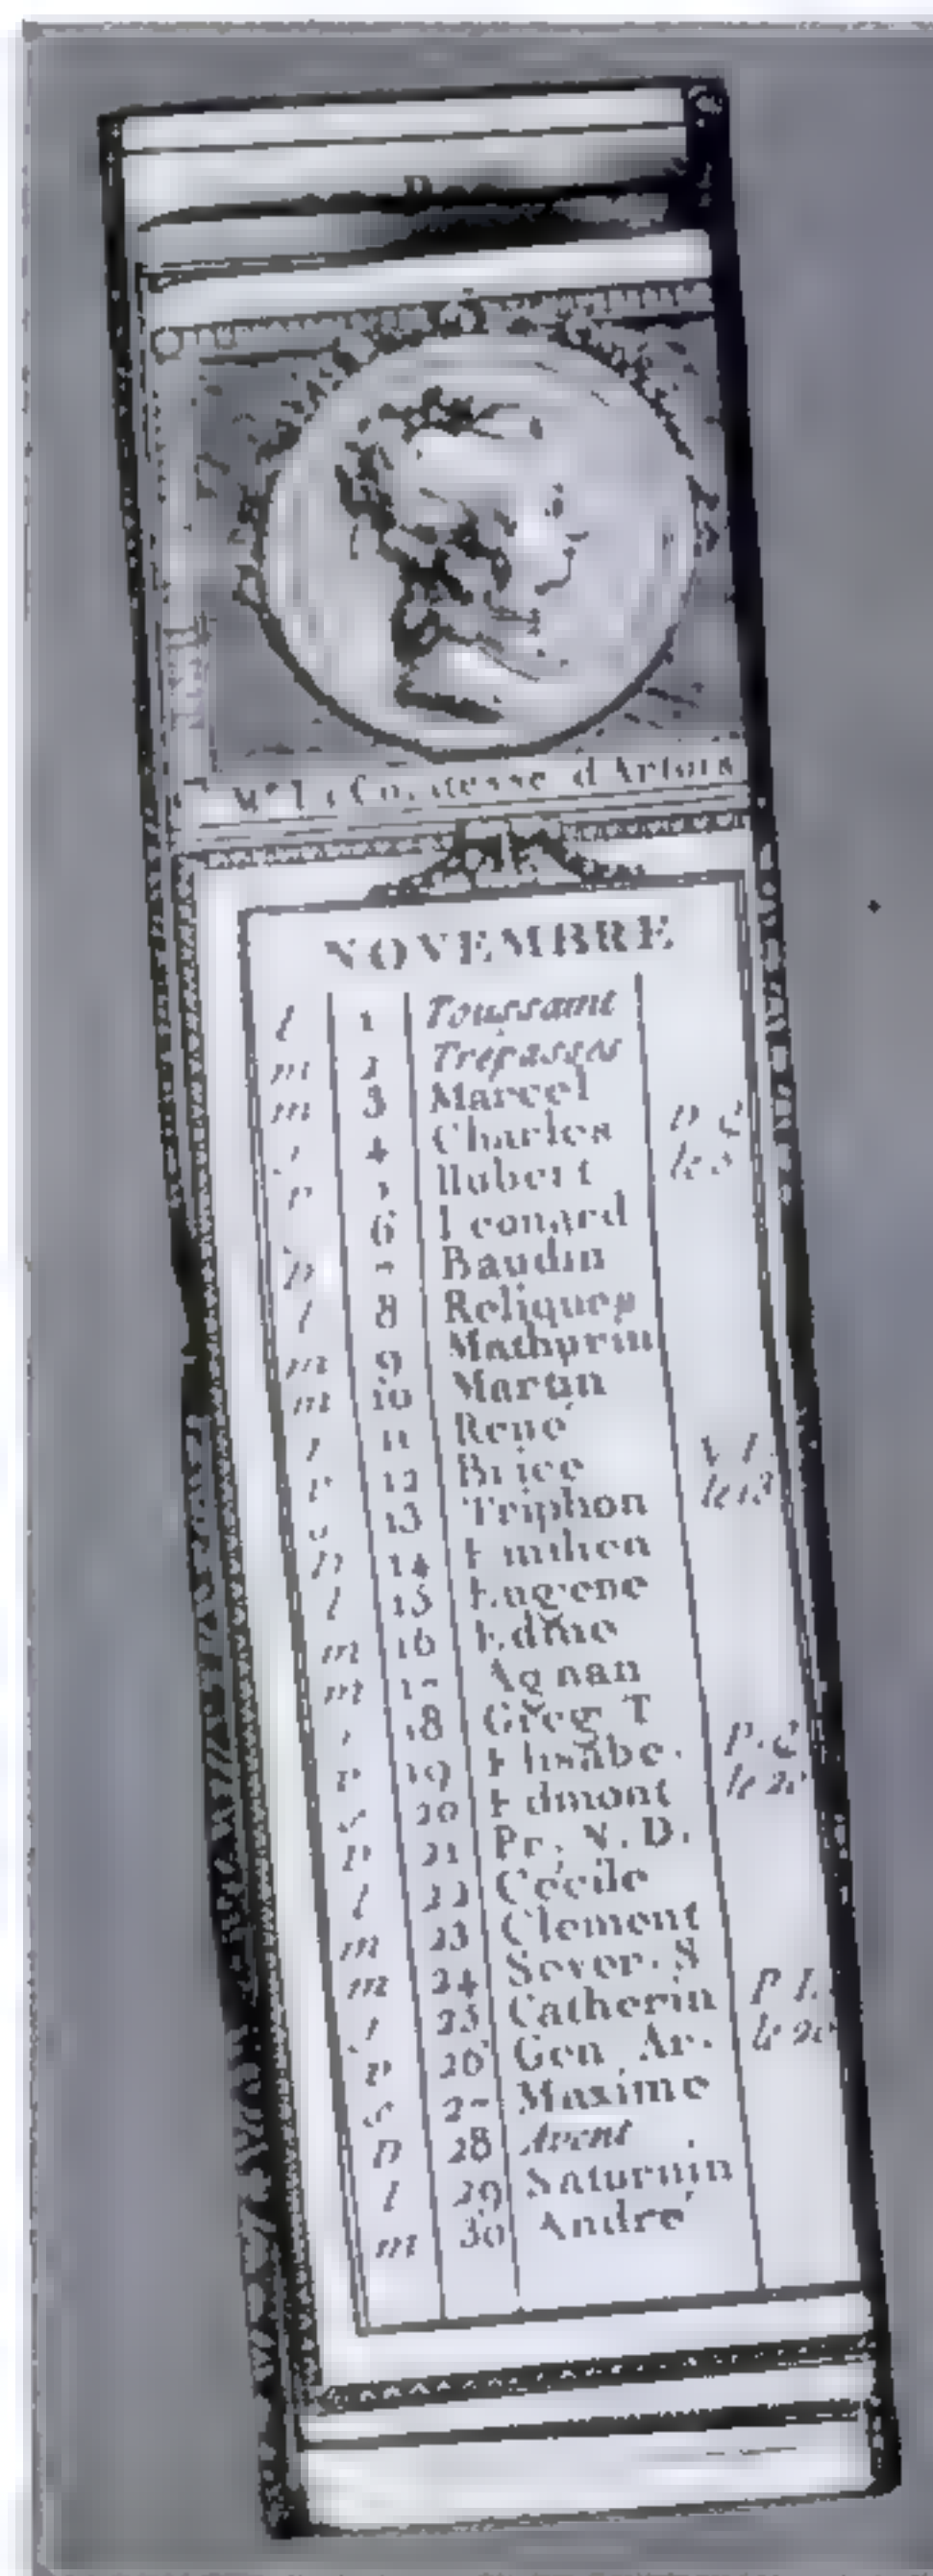 Me La Comtesse d'Artois
NOVEMBRE
l 1 Toussaint
m 2 Trépassés
m 3 Marcel
j 4 Charles D.Q.
v 5 Hubert le 5
6 Leonard
D 7 Baudin
l 8 Reliques
m 9 Mathurin
m 10 Martin
j 11 René
v 12 Brice N.L.
s 13 Triphon le 13
D 14 Emilien
l 15 Eugene
m 16 Edme
m 17 Agnan
j 18 Greg T
v 19 Elisabe. P.Q.
s 20 Edmont le 20
D 21 Pr. N. D.
l 22 Cécile
m 23 Clement
m 24 Sever. S
j 25 Catherin P.L.
v 26 Gen. Ar. le
s 27 Maxime
D 28 Avent
l 29 Saturnin
m 30 André